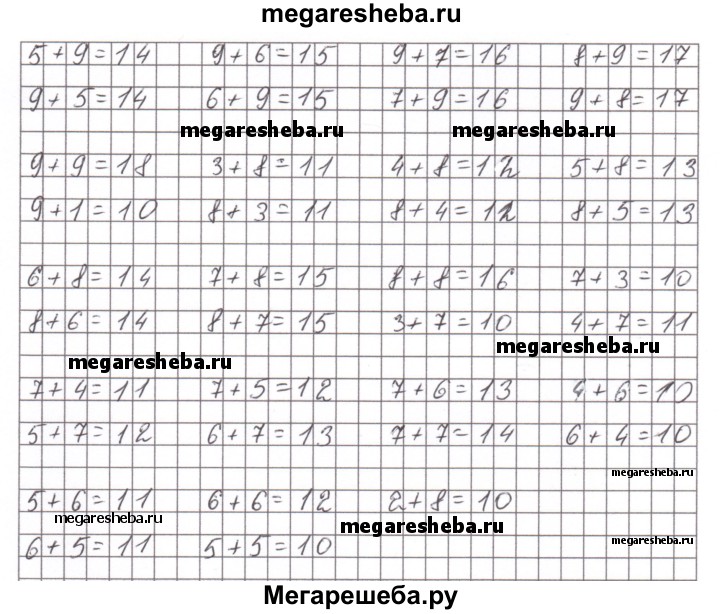 megaresheba.ru
5+9=14 9+6=15 9+7=16 8+9=17
9+5=14 6+9=15 7+9=16 9+8=17
megaresheba.ru megaresheba.ru
9+9=18 3+8=11 4+8=12 5+8=13
9+1=10 8+3=11 8+4=12 8+5=13
6+8=14 7+8=15 8+8=16 7+3=10
8+6=14 8+7=15 3+7=10 4+7=11
megaresheba.ru megaresheba.ru
7+4=11 7+5=12 7+6=13 4+6=10
5+7=12 6+7=13 7+7=14 6+4=10
megaresheba.ru
5+6=11 6+6=12 2+8=10
megaresheba.ru megaresheba.ru megaresheba.ru
6+5=11 5+5=10
Мегарешеба.ру